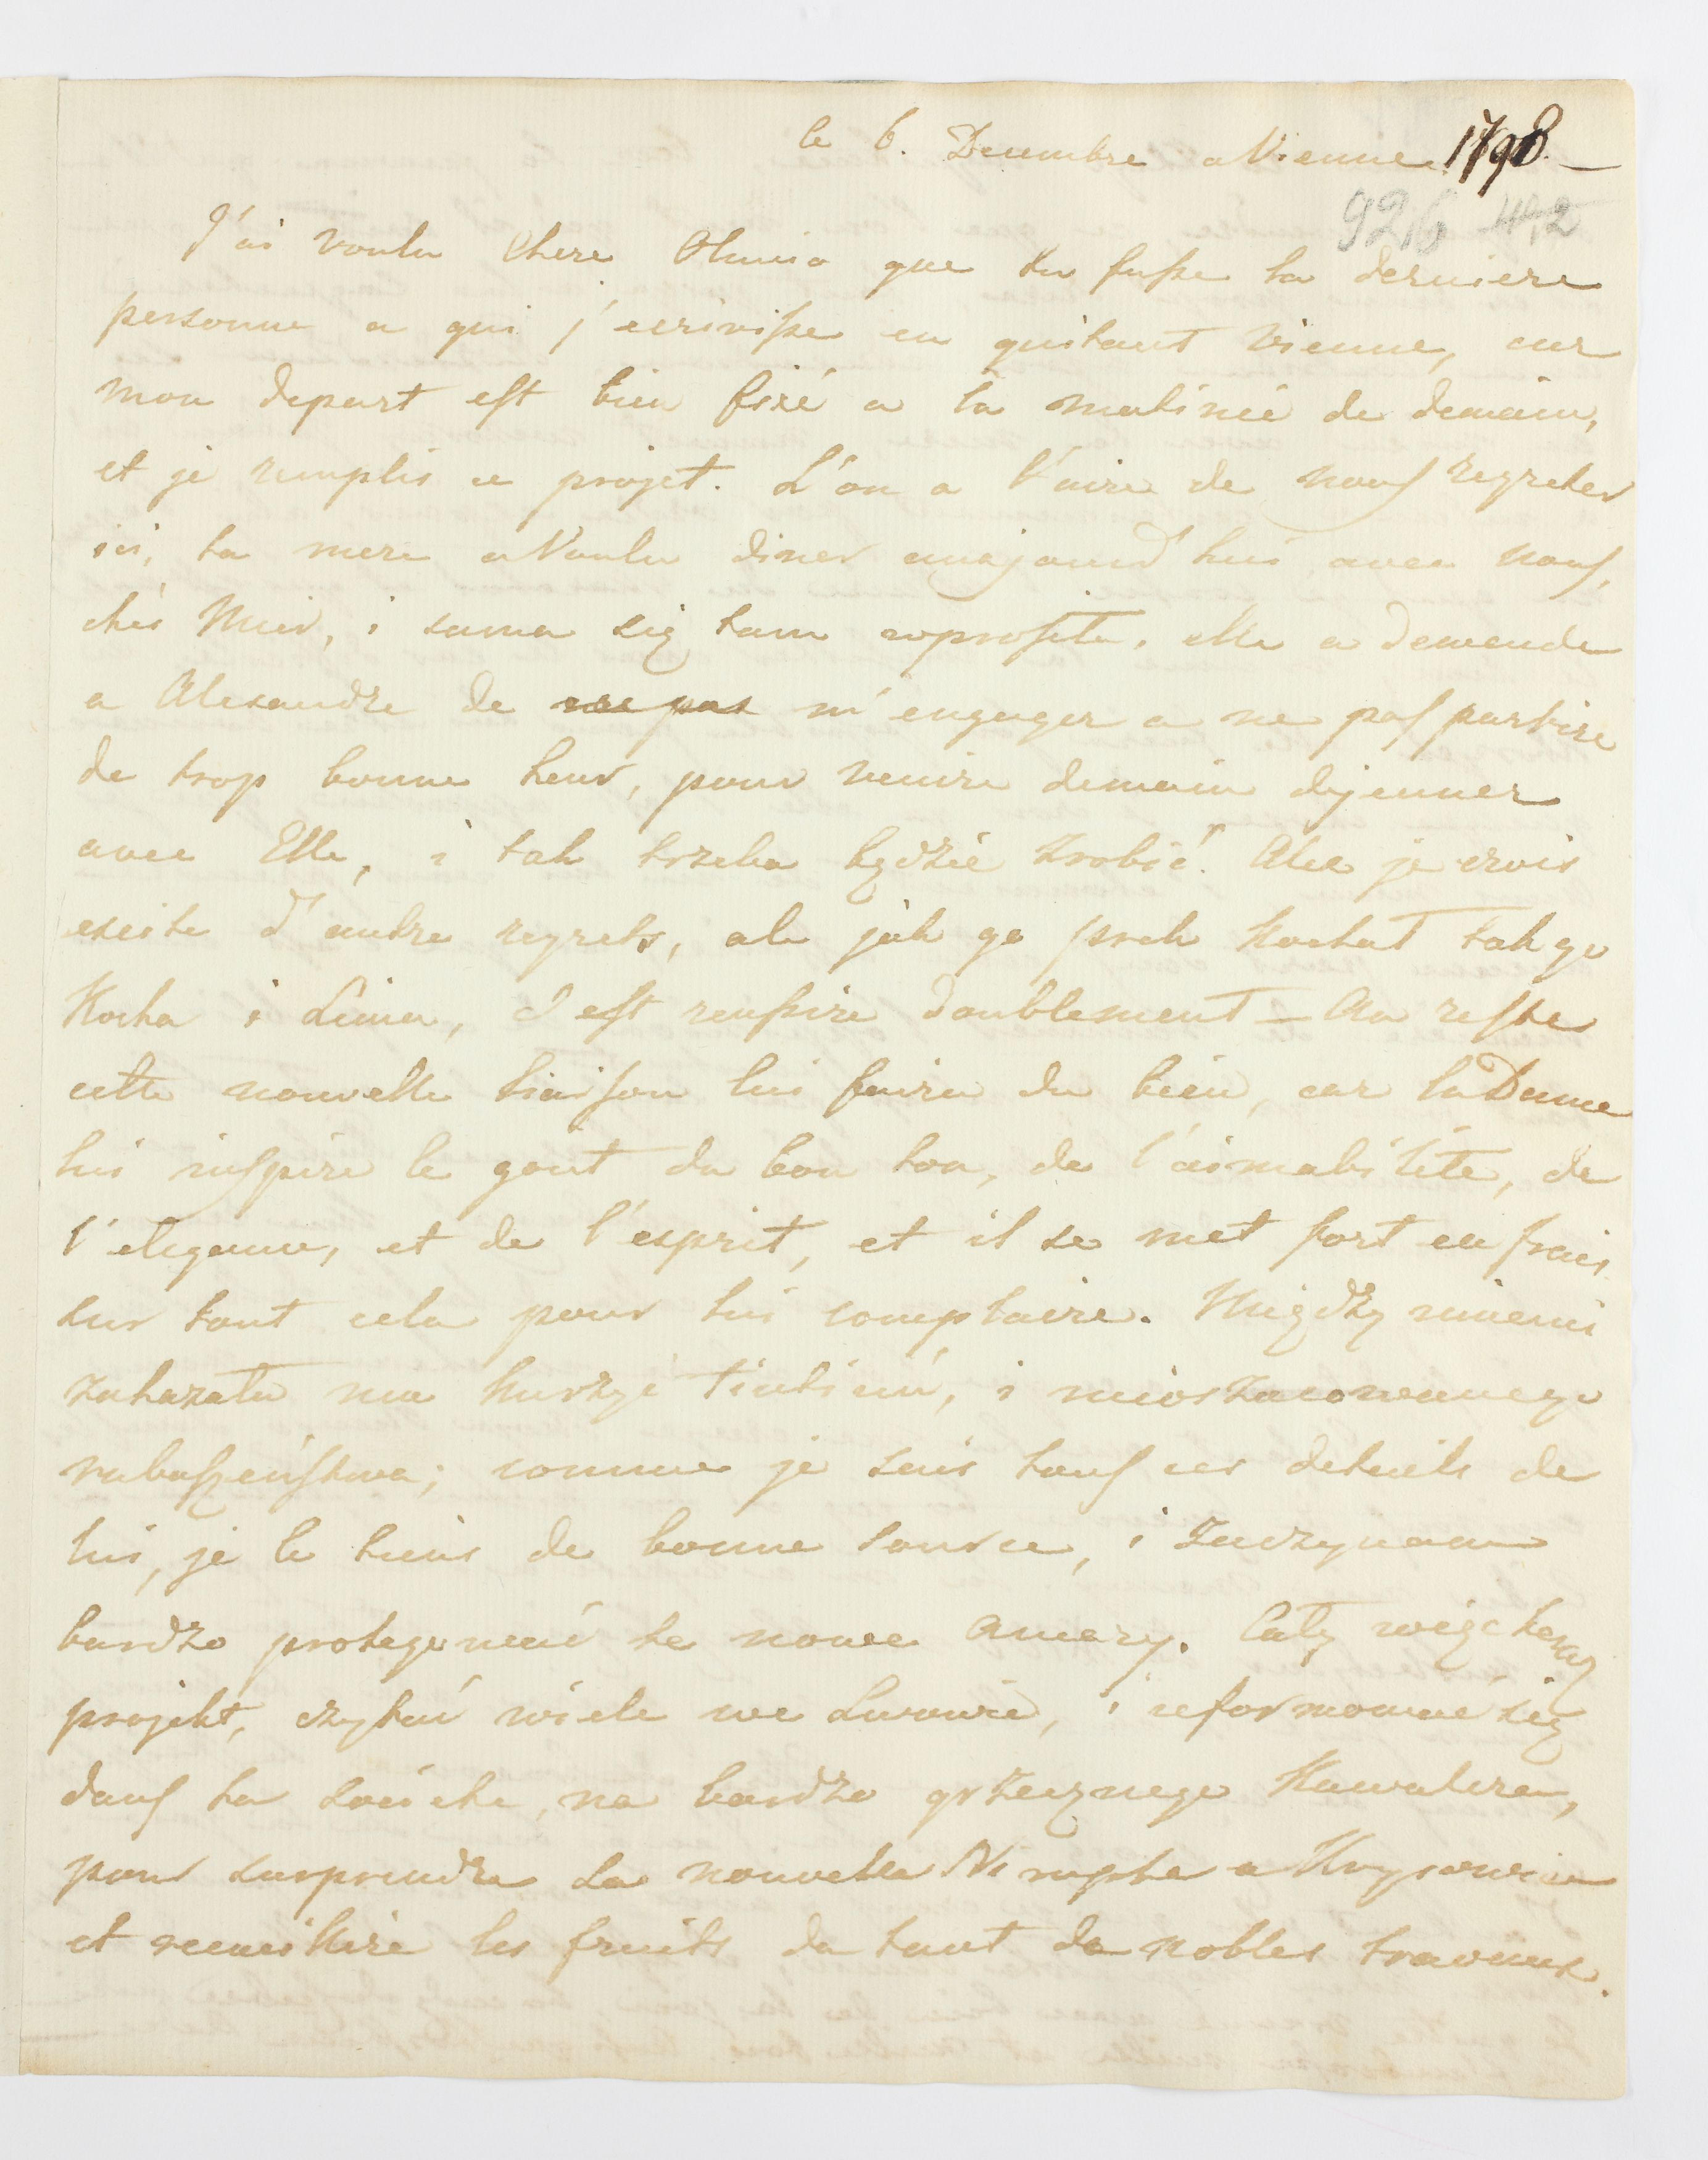 le 6. Decembre a Vienne 1798. —
926 492
J'ai voulu chere Olunia que tu fusse la derniere
personne a qui j'ecrivisse en quitant Vienne, car
mon depart est bien fixé a la matineé de demain,
et je remplis ce projet. L'on a l'aire de nous regreter
ici, ta mere a Voulu diner aujourd'hui avec nous,
chés Mier, i sama się tam wprosiła, elle a demende
a Alexandre de ne pas m'engager a ne pas partire
de trop bonne heur, pour venire demain dejeuner
avec Elle, i tak trzeba będzie zrobić. Alex je crois
exsite d'autre regrets, ale jak go Kochał tak go
Kocha i Lima, c'est reussire doublement — Au reste
cette nouvelle liaison lui faira du bien, car la Dame
lui inspire le gout du bon ton, de l'aimabilité, de
l'elegance, et de l'esprit, et il se met fort en frais
sur tout cela pour lui complaire. Między niemi
zakazała mu kurzyć i
; comme je sais tous ces details de
lui, je le tiens de bonne source, i zaczynam
bardzo protegować te nowe Amory. Cały więc teraz
projekt, czytać wiele we Lwowie, i reformować się
dans la , na bardzo grzecznego Kawalera,
pour surprendre La nouvelle Nimphe a Krysowice
et receuillire les fruits de tant de nobles travaux.